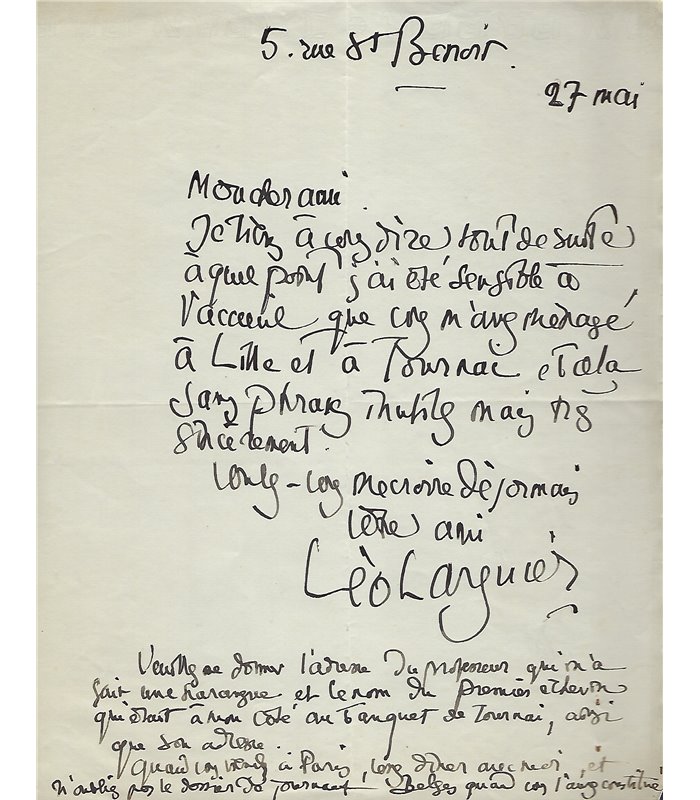 5. rue St Benoit.
27 mai
Mon cher ami
Je tiens à vous dire tout de suite
à quel point j'ai été sensible à
l'accueil que vous m'avez ménagé
à Lille et à Tournai et cela
sans phrases inutiles mais très
sincèrement.
Voulez-vous me croire désormais
votre ami
Léo Larguier
Veuillez me donner l'adresse du professeur qui m'a
fait une harangue et le nom du premier échevin
qui était à mon côté au banquet de Tournai, ainsi
que son adresse.
Quand vous viendrez à Paris, venez dîner avec moi, et
n'oubliez pas le dossier de Belges quand vous l'aurez constitué